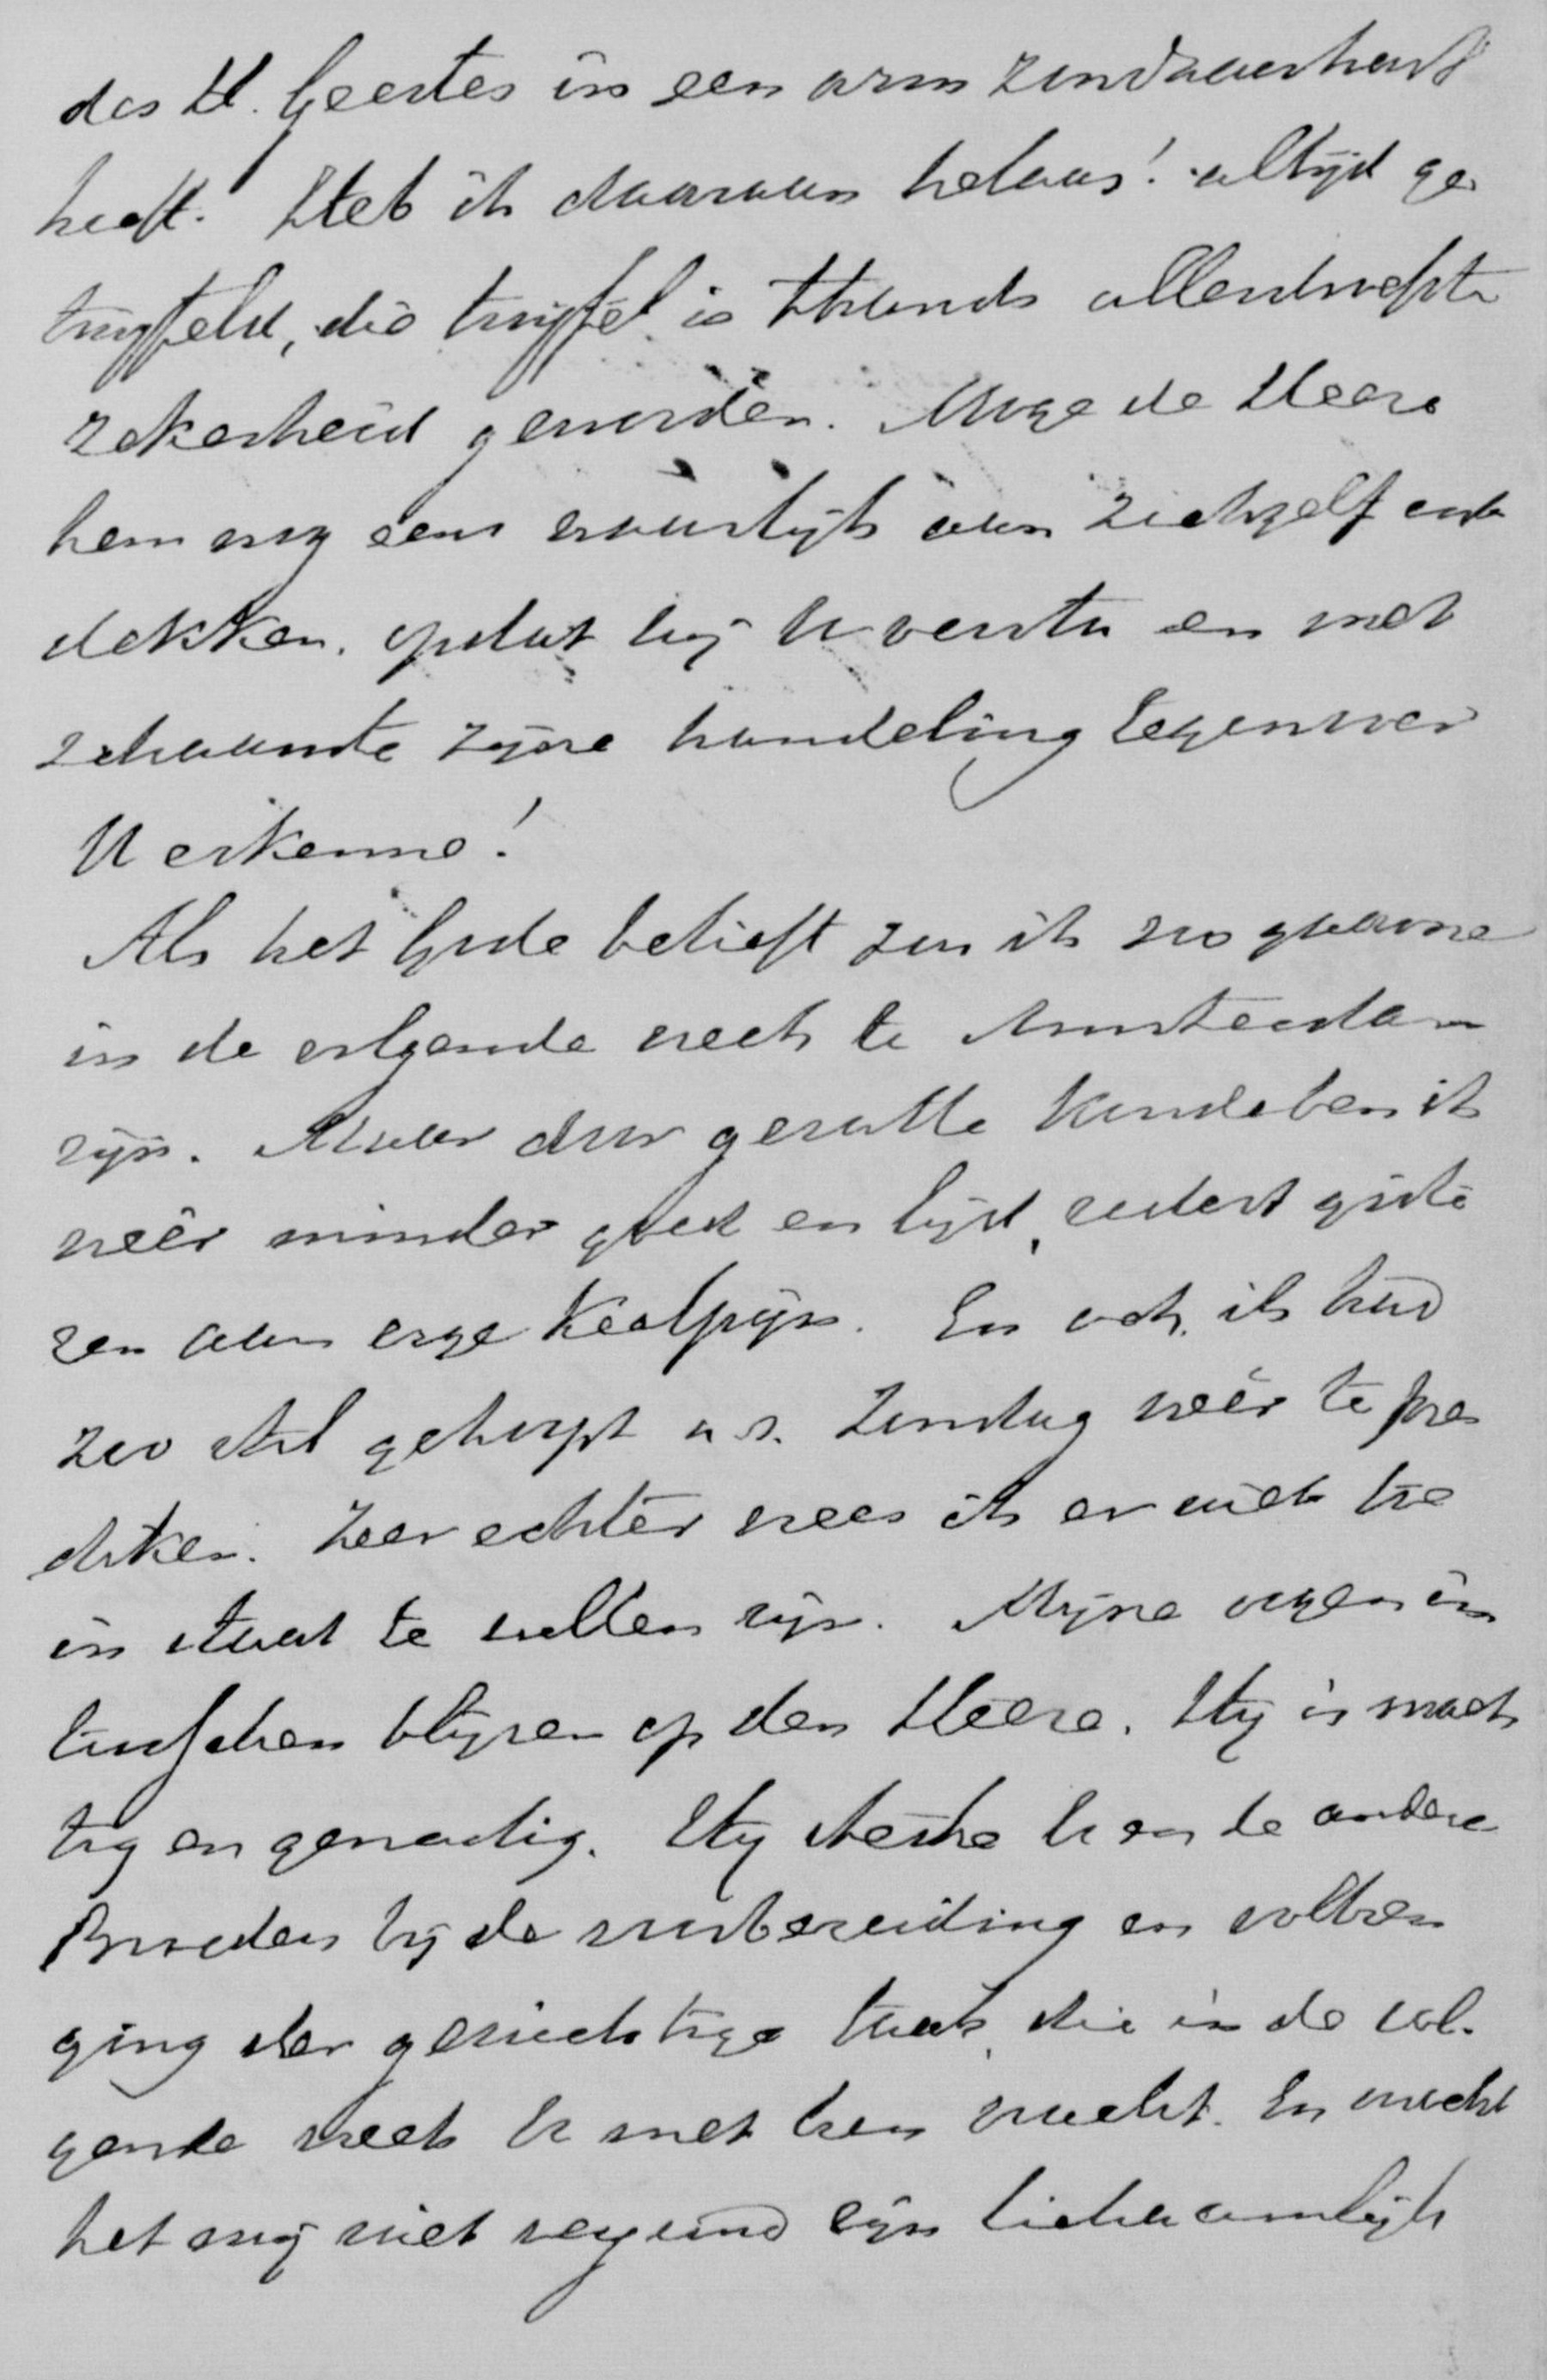 des H. Geestes in een arm zondaarshart
heeft. Heb ik daaraan helaas! altijd ge
twijfeld, die twijfel is thands allerdroefste
zekerheid geworden. Moge de Heere
hem nog eens ernstiglijk aan zichzelf ont
dekken. opdat hij U versta en met
schaamte zijne handeling tegenover
U erkenne!
Als het Gode belieft zou ik zoo gaarne
in de volgende week te Amsterdam
zijn. Maar door gevatte koude ben ik
weêr minder goed en lijd, sedert giste
ren aan erge keelpijn. En och, ik had
zoo stil gehoopt a.s. Zondag weêr te pre
diken. Zeer echter vrees ik er niet toe
in staat te zullen zijn. Mijne oogen in
tusschen blijven op den Heere. Hij is mach
tig en genadig. Hij sterke U en de andere
Broeders bij de voorbereiding en volbren
ging der gewichtige taak, die in de vol-
gende week U met hen wacht. En mocht
het mij niet vergund zijn lichaamlijk